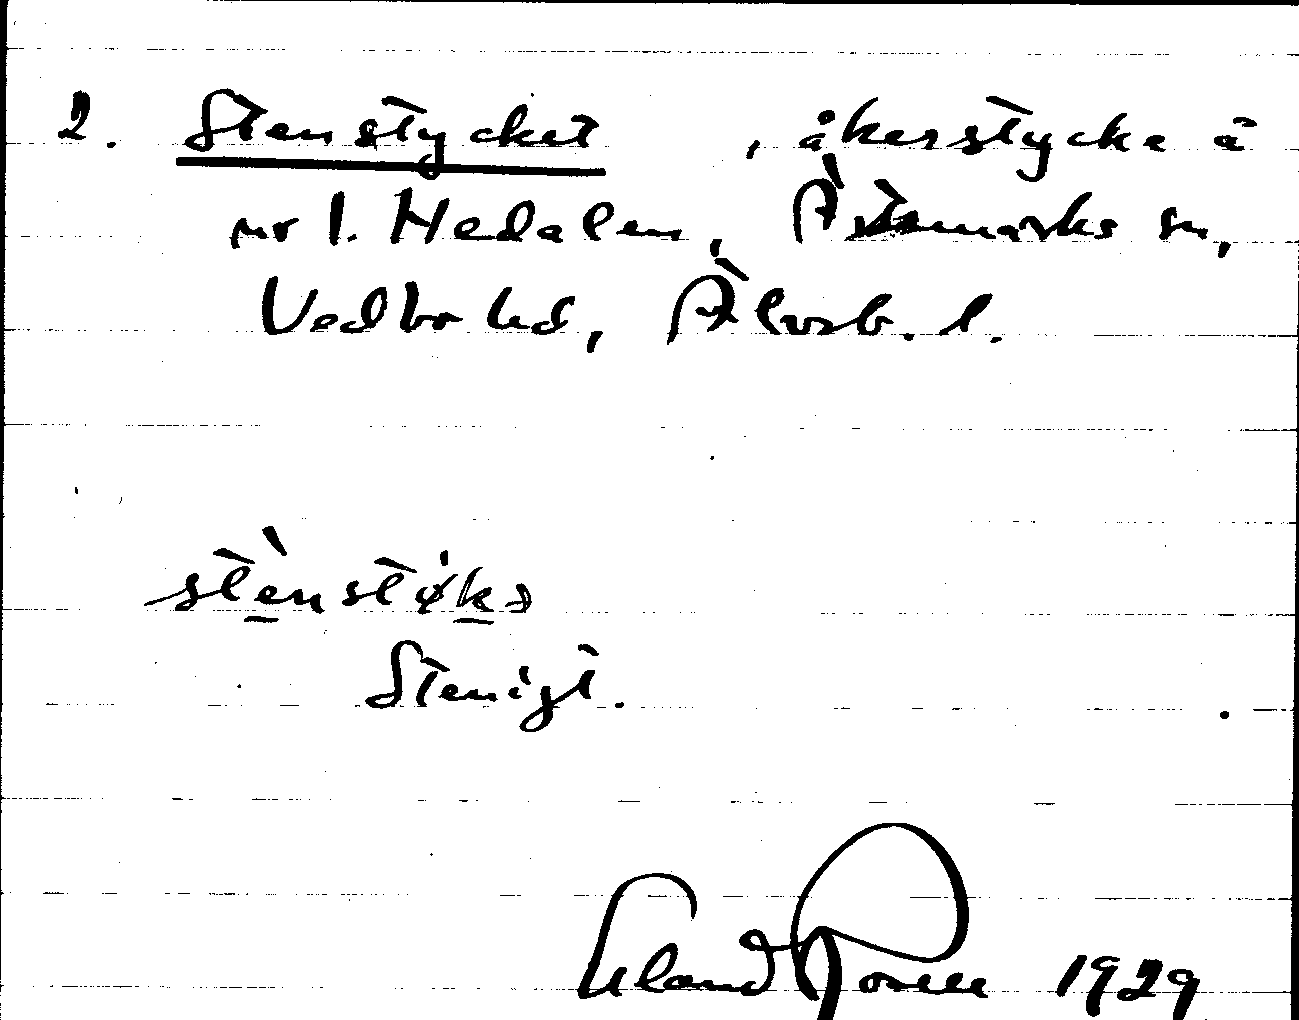 2. Stenstycket , åkerstycke å
nr 1. Hedalen, Ärtemarks sn,
Vedbo hd, Älvsb. l.
stènstøkə
Stenigt.
Erland Rosell 1929